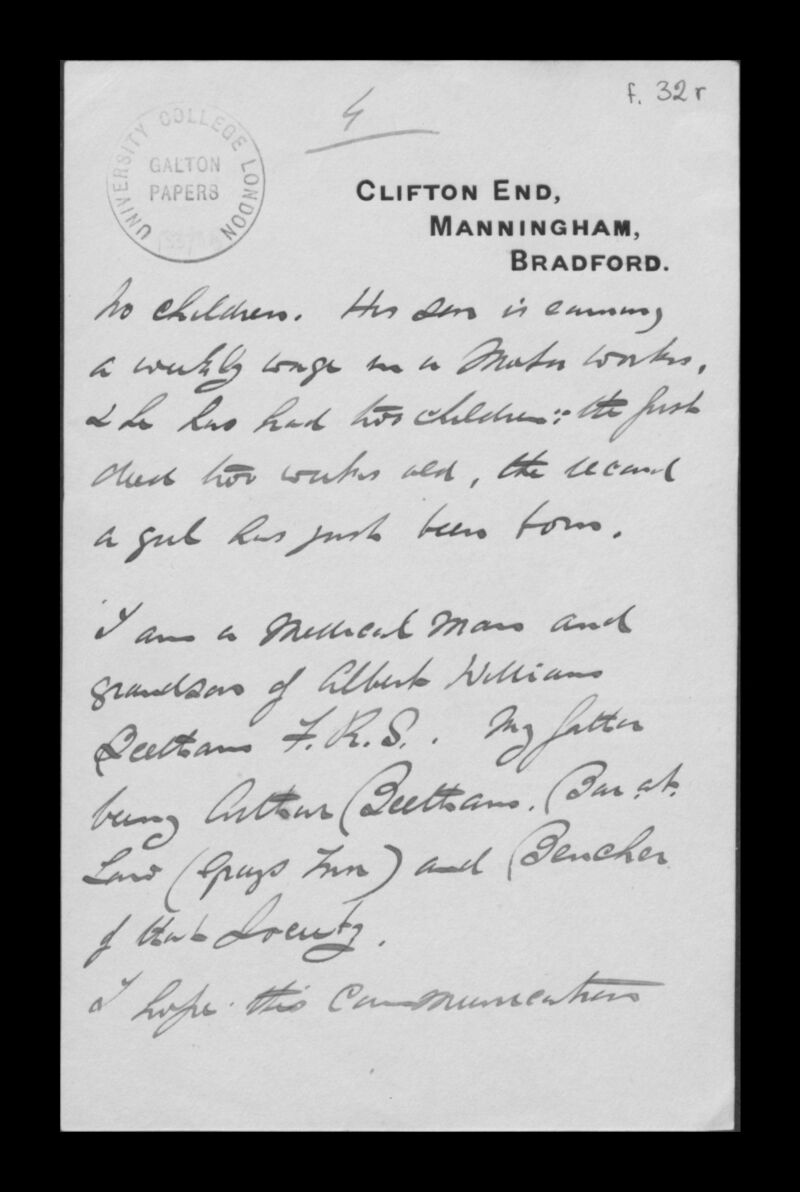 f. 32 r
4
UNIVERSITY COLLEGE LONDON
GALTON
PAPERS
CLIFTON END,
MANNINGHAM,
BRADFORD.
no children. His son is earning
a weekly wage in a Motor works,
& he has had two children: the first
died two weeks old, the second
a girl has just been born.
I am a Medical Man and
grandson of Albert William
Beetham F.R.S.. My father
being Arthur Beetham. Bar. at.
Law (Grays Inn) and Bencher
of that Society.
I hope this Communication